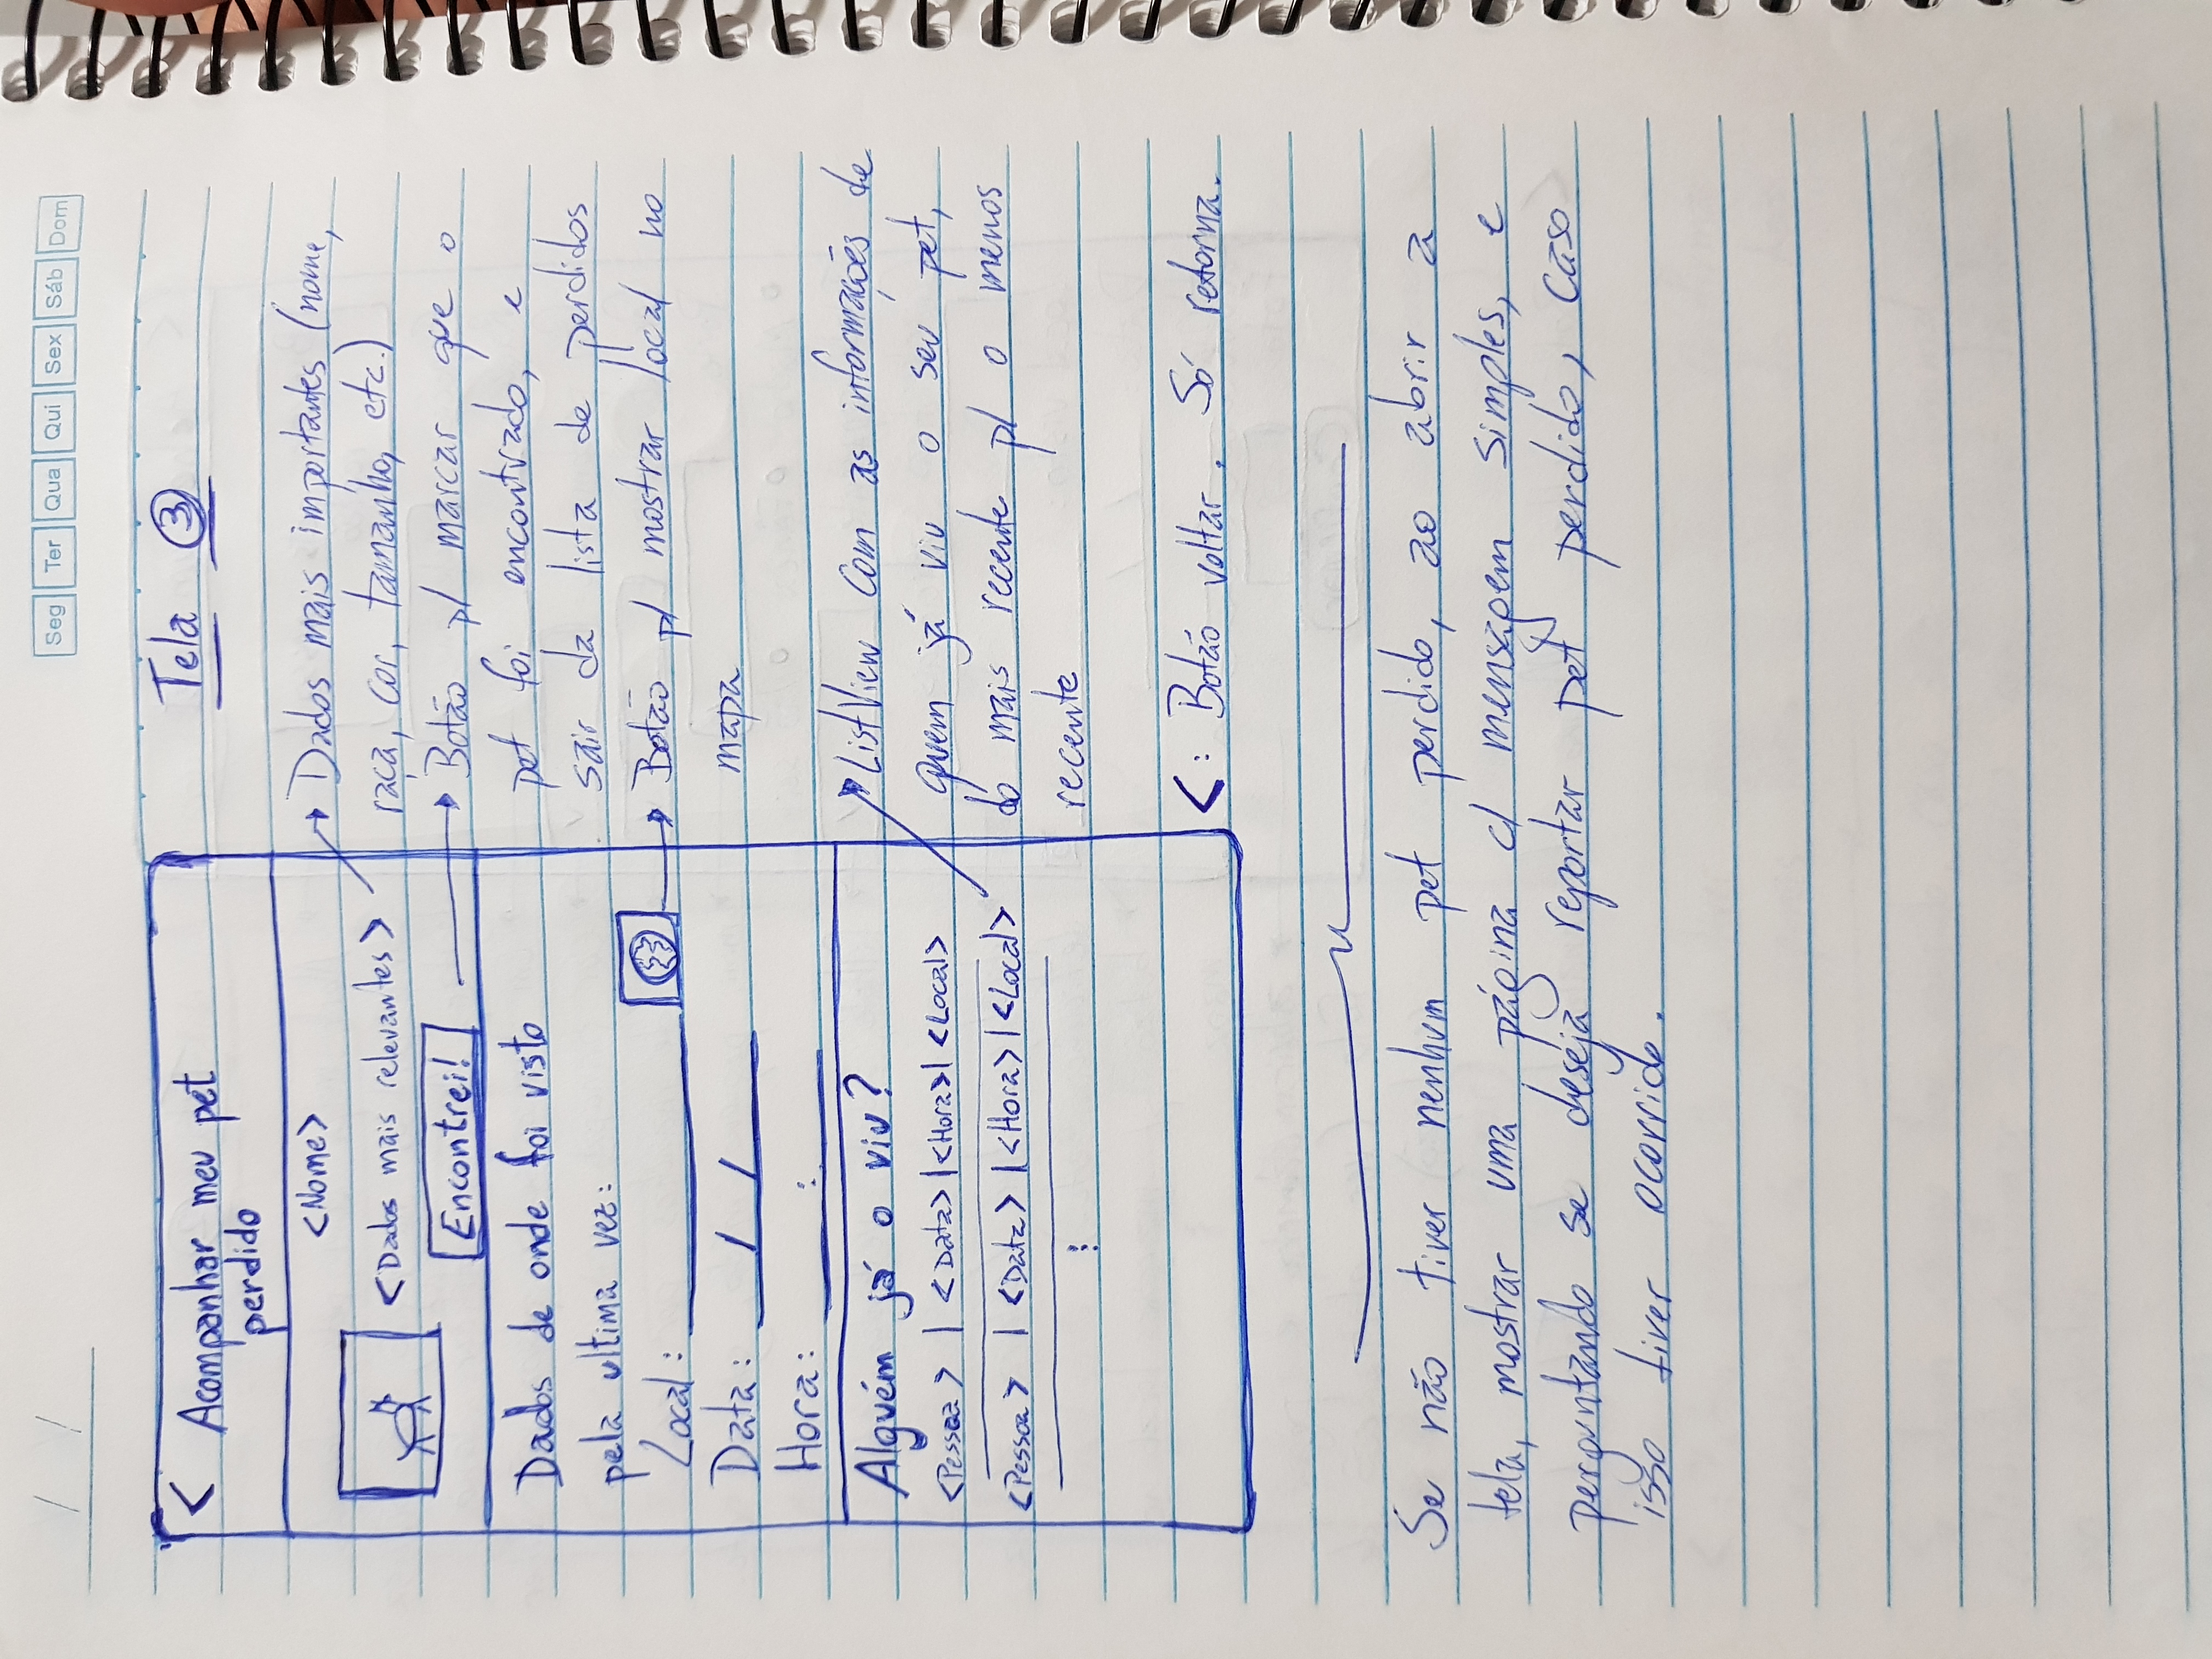 / /
Seg Ter Qua Qui Sex Sáb Dom
Tela ③
< Acompanhar meu pet
perdido
<Nome>
<Dados mais relevantes>
Encontrei!
Dados de onde foi visto
pela ultima vez:
Local:
Data: / /
Hora: :
Alguém já o viu?
<Pessoa> | <Data> | <Hora> | <Local>
<Pessoa> | <Data> | <Hora> | <Local>
⋮
Dados mais importantes (nome,
raça, cor, tamanho, etc.)
Botão p/ marcar que o
pet foi encontrado, e
sair da lista de perdidos
Botão p/ mostrar local no
mapa
ListView com as informações de
quem já viu o seu pet,
do mais recente p/ o menos
recente
<: Botão voltar. Só retorna.
Se não tiver nenhum pet perdido, ao abrir a
tela, mostrar uma página c/ mensagem simples, e
perguntando se deseja reportar pet perdido, caso
isso tiver ocorrido.